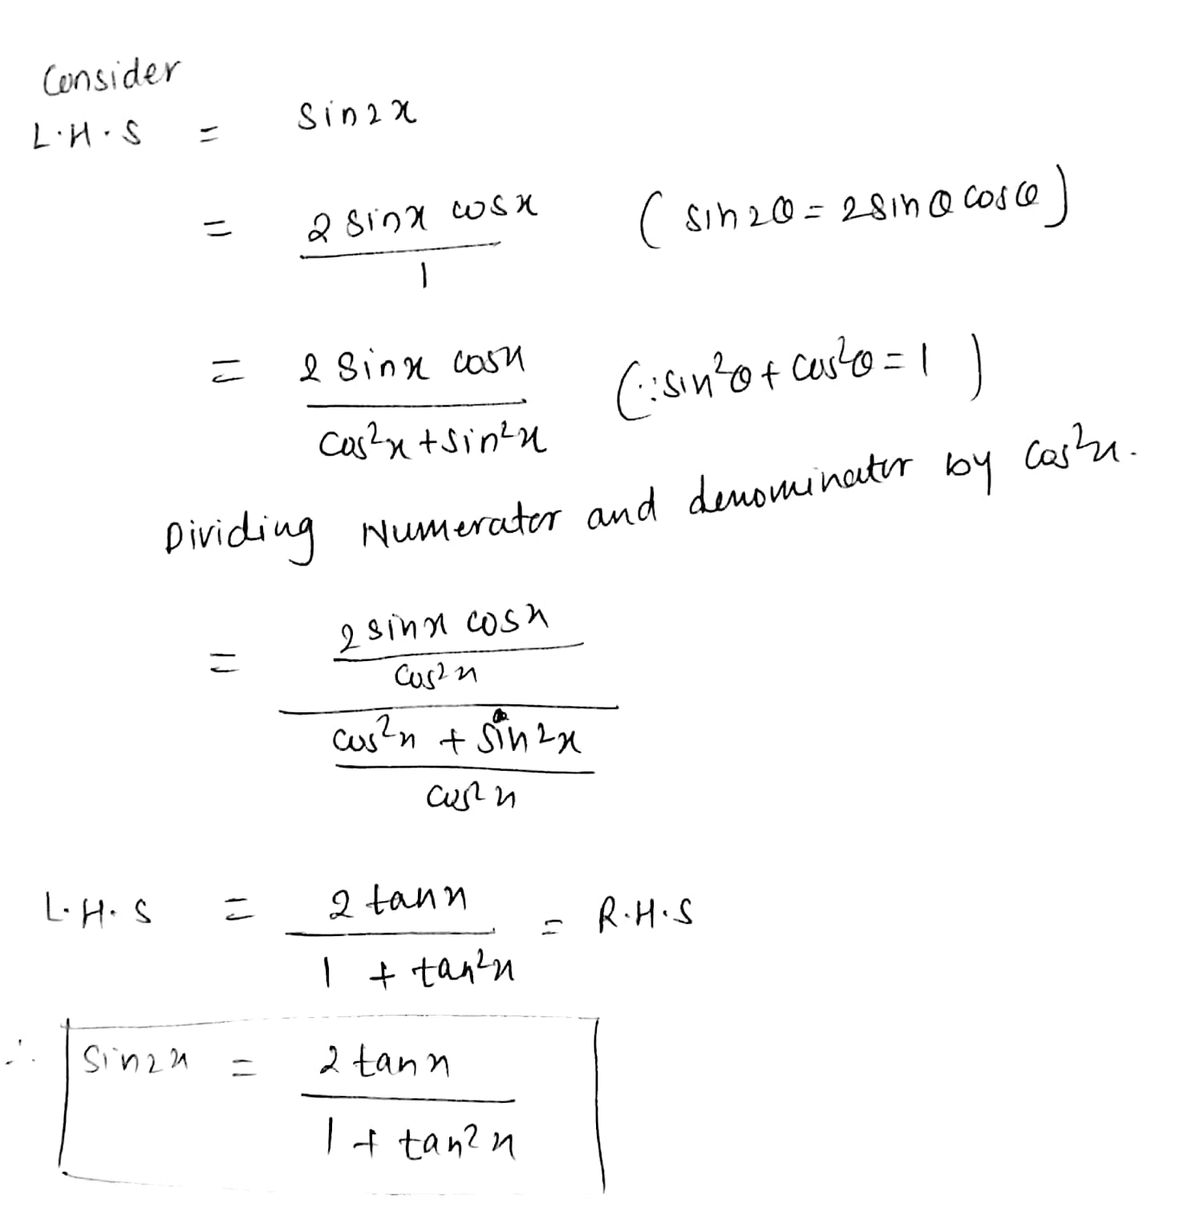 Consider
L.H.S = Sin2x
= 2 sinx cosx / 1 (sin2θ = 2sinθ cosθ)
= 2 Sinx cosx / cos²x + sin²x (∵ sin²θ + cos²θ = 1)
Dividing Numerator and denominator by cos²x.
= 2 sinx cosx / cos²x / cos²x + sin²x / cos²x
L.H.S = 2 tanx / 1 + tan²x = R.H.S
∴ Sin2x = 2 tanx / 1 + tan²x